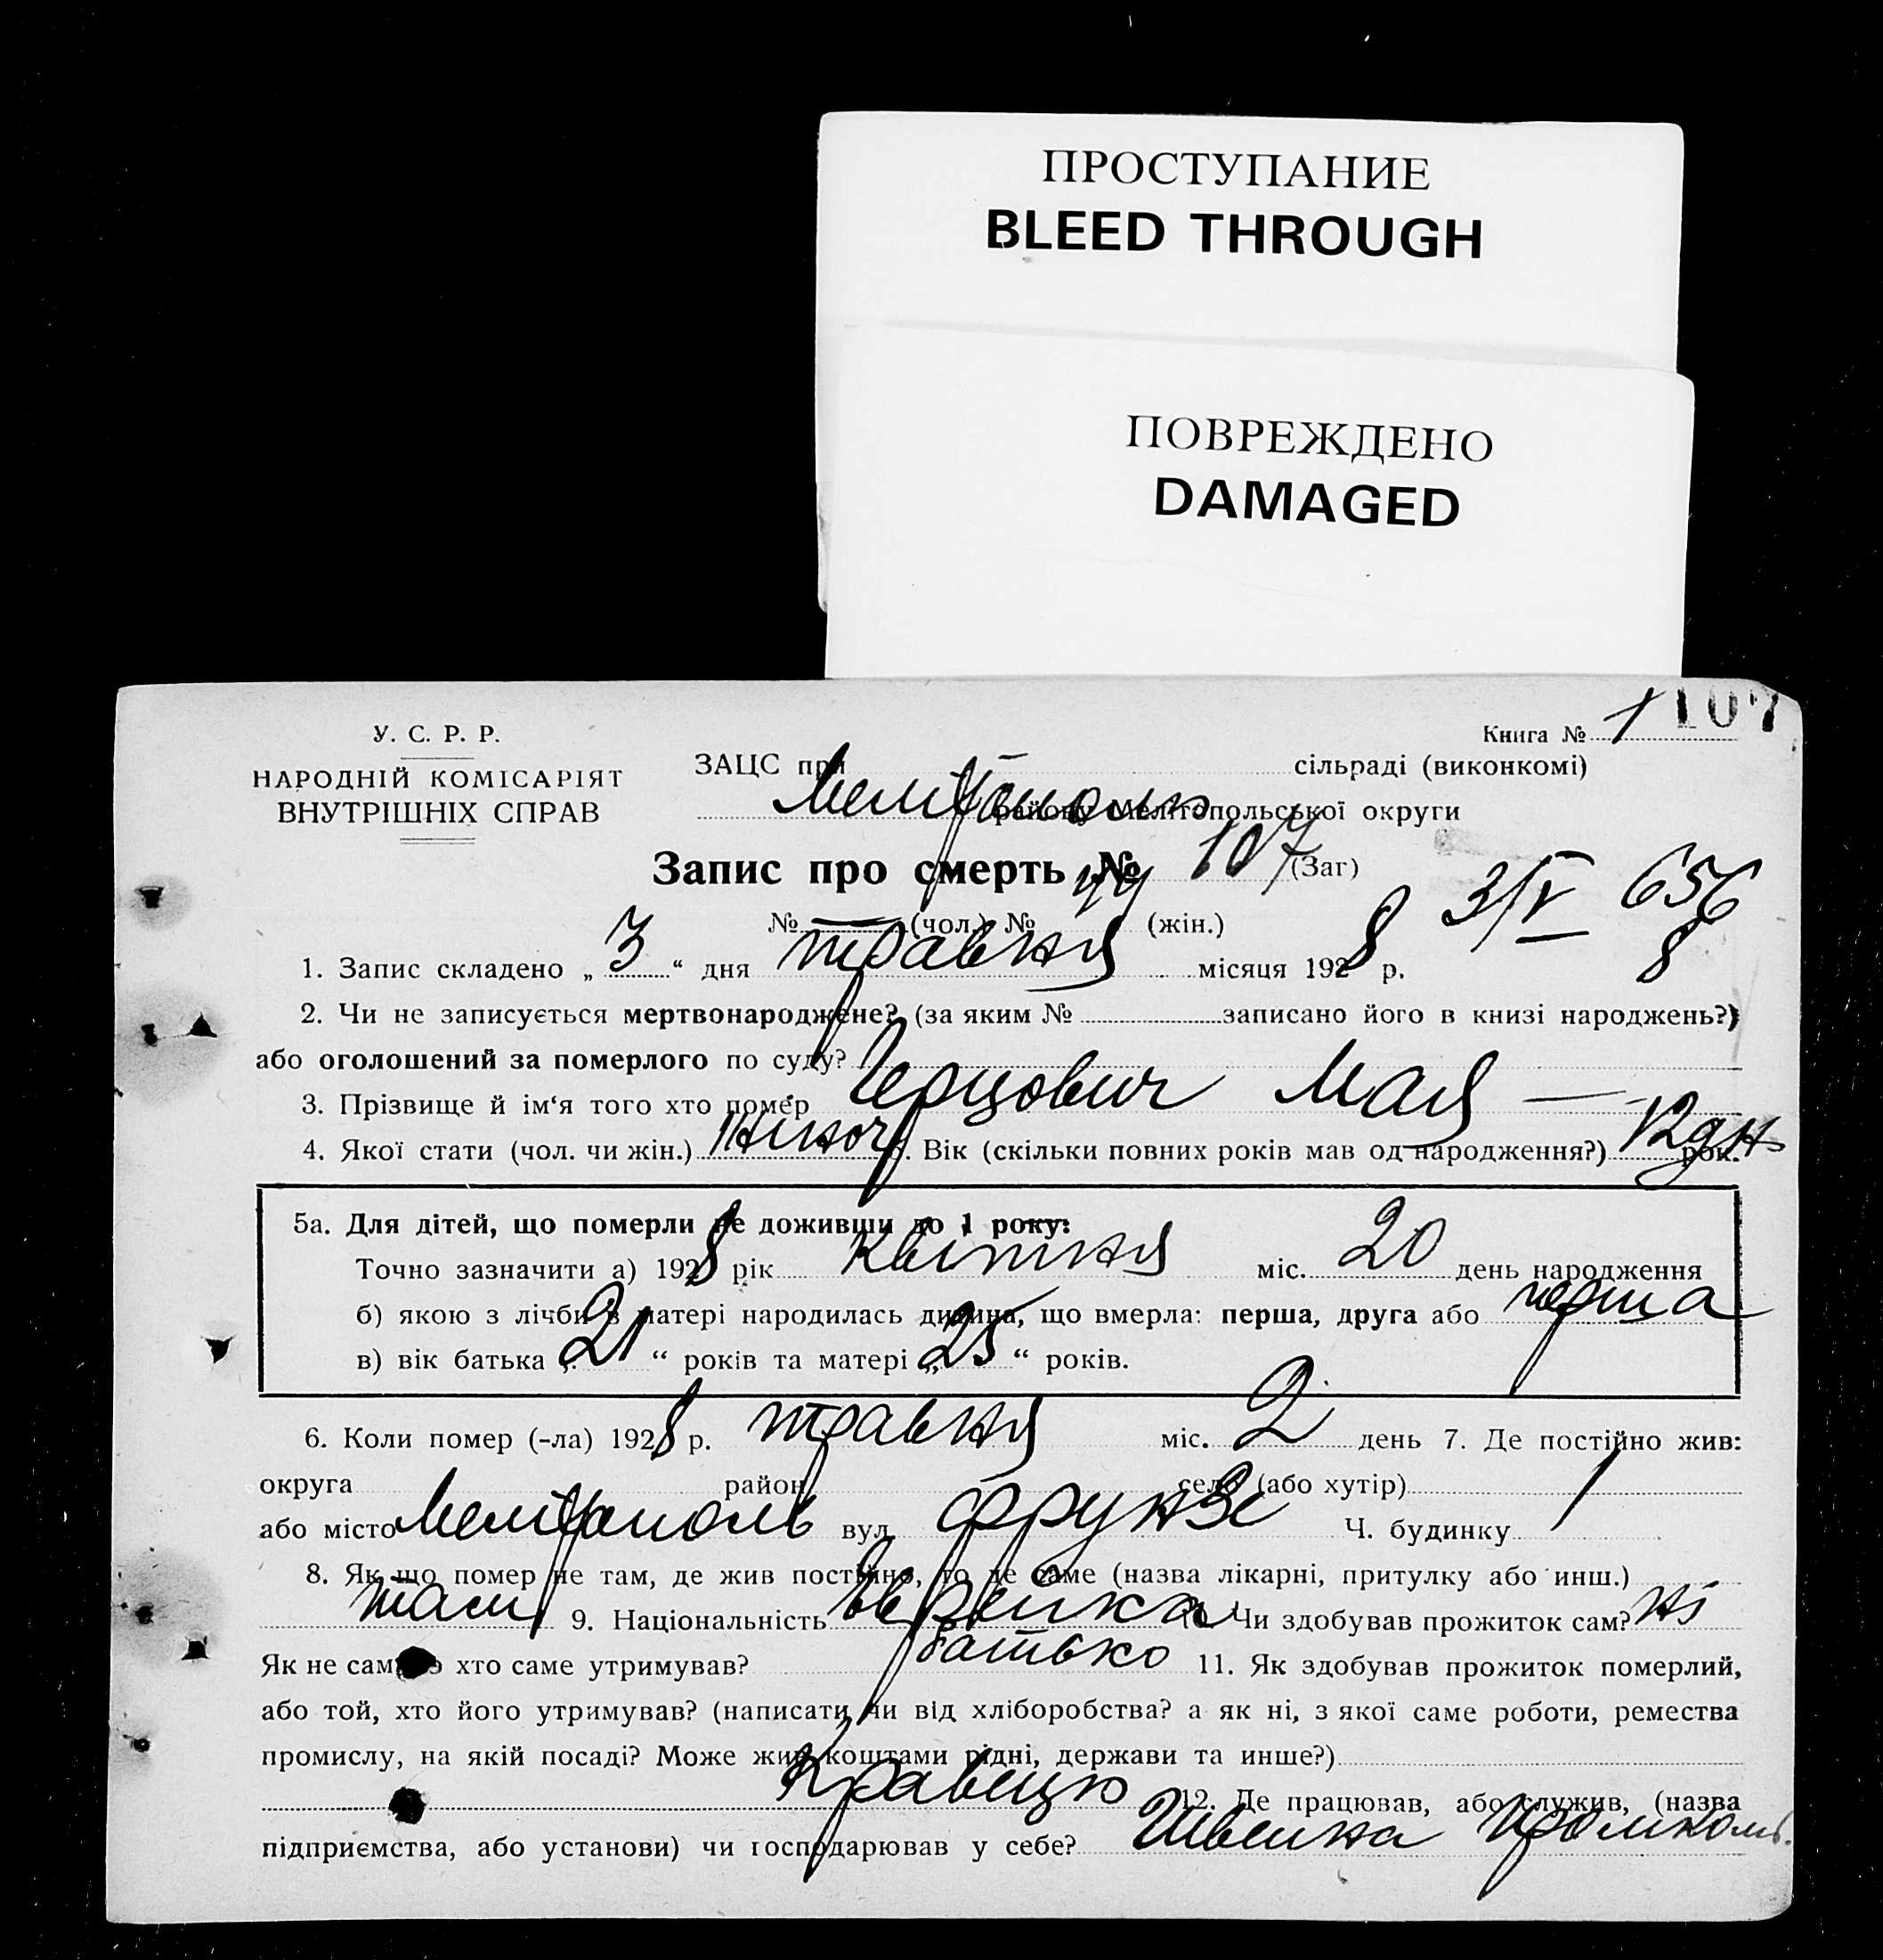 ПРОСТУПАНИЕ
BLEED THROUGH
ПОВРЕЖДЕНО
DAMAGED
107
У. С. Р. Р.
НАРОДНІЙ КОМІСАРІЯТ
ВНУТРІШНІХ СПРАВ
Книга № 1
ЗАЦС при сільраді (виконкомі)
Мелітополь району Мелітопольської округи
Запис про смерть № 107 (Заг)
№ — (чол.) № 44 (жін.)
3/V 656
8
1. Запис складено „ 3 “ дня травня місяця 1928 р.
2. Чи не записується мертвонароджене? (за яким № записано його в книзі народжень?)
або оголошений за померлого по суду?
3. Прізвище й ім‘я того хто помер Герцович Мая —
4. Якої стати (чол. чи жін.) жіноч 5. Вік (скільки повних років мав од народження?) 12 дн рок.
5а. Для дітей, що померли не доживши до 1 року:
Точно зазначити а) 1928 рік квітня міс. 20 день народження
б) якою з лічби в матері народилась дитина, що вмерла: перша, друга або перша
в) вік батька „ 21 “ років та матері „ 25 “ років.
6. Коли помер (-ла) 1928 р. травня міс. 2 день 7. Де постійно жив:
округа район село (або хутір)
або місто Мелітополь вул. Фрунзе Ч. будинку 1
8. Як що помер не там, де жив постійно, то де саме (назва лікарні, притулку або инш.)
там 9. Національність Єврейка 10. Чи здобував прожиток сам? ні
Як не сам то хто саме утримував? батько 11. Як здобував прожиток померлий,
або той, хто його утримував? (написати чи від хліборобства? а як ні, з якої саме роботи, ремества
промислу, на якій посаді? Може жив коштами рідні, держави та инше?)
Кравецю 12. Де працював, або служив, (назва
підприємства, або установи) чи господарював у себе? Швейна